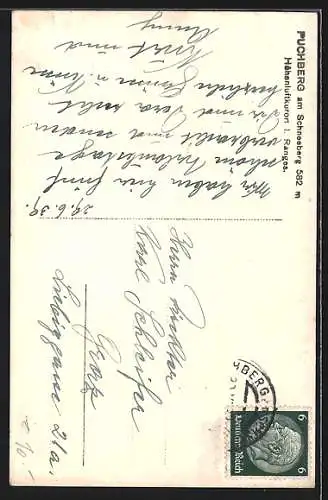 PUCHBERG am Schneeberg 582 m
Höhenluftkurort I. Ranges.
29.6.39.
Wir haben hier fünf
schöne Urlaubstage
verbracht und senden
Dir und Dora recht
herzliche Grüsse u. Küsse
Mitzi und
Herrn Doktor
Karl Schleifer
Graz
Liebiggasse 21a.
6 6
Deutsches Reich